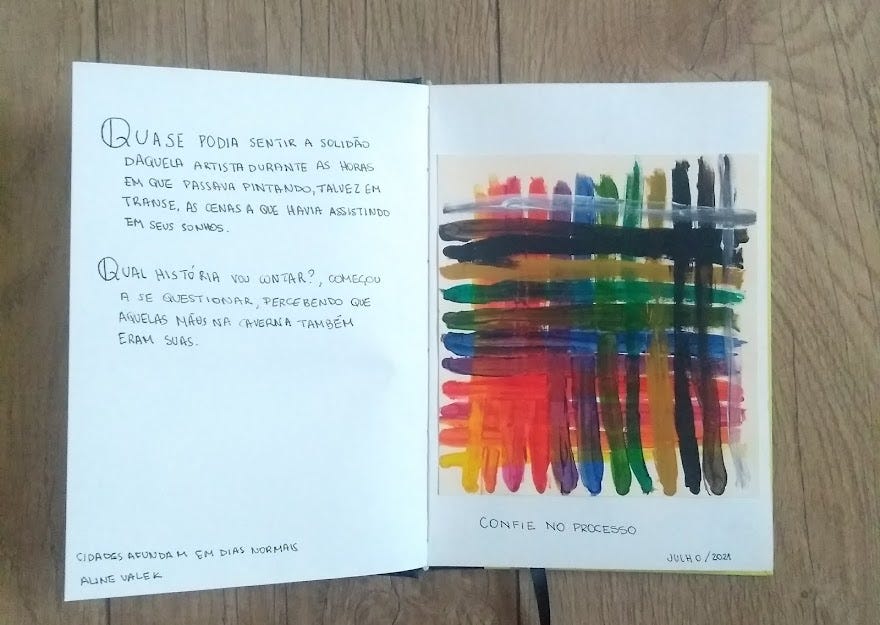 QUASE PODIA SENTIR A SOLIDÃO
DAQUELA ARTISTA DURANTE AS HORAS
EM QUE PASSAVA PINTANDO, TALVEZ EM
TRANSE, AS CENAS A QUE HAVIA ASSISTINDO
EM SEUS SONHOS.
QUAL HISTÓRIA VOU CONTAR?, COMEÇOU
A SE QUESTIONAR, PERCEBENDO QUE
AQUELAS MÃOS NA CAVERNA TAMBÉM
ERAM SUAS.
CIDADES AFUNDAM EM DIAS NORMAIS
ALINE VALEK
CONFIE NO PROCESSO
JULHO/2021